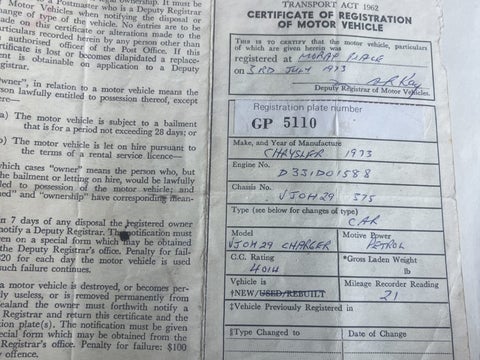 legal ownership. It must
to a Postmaster who is a Deputy
of Motor Vehicles when notifying the disposal or
change of type of the vehicle. No entries are to be
made on this certificate or alterations made to the
particulars recorded herein by any person other than
an authorised officer of the Post Office. If this
certificate is lost or becomes dilapidated a replace-
ment is obtainable on application to a Deputy
Registrar.
"Owner", in relation to a motor vehicle means the
person lawfully entitled to possession thereof, except
where—
(a) The motor vehicle is subject to a bailment
that is for a period not exceeding 28 days; or
(b) The motor vehicle is let on hire pursuant to
the terms of a rental service licence—
which cases "owner" means the person who, but
the bailment or letting on hire, would be lawfully
entitled to possession of the motor vehicle; and
"owned" and "ownership" have corresponding mean-
in 7 days of any disposal the registered owner
notify a Deputy Registrar. The notification must
given on a special form which may be obtained
the Deputy Registrar's office. Penalty for fail-
$20 for each day the motor vehicle is used
such failure continues.
a motor vehicle is destroyed, or becomes per-
useless, or is removed permanently from
Zealand the owner must forthwith notify a
Registrar and return this certificate and the
registration plate(s). The notification must be given
special form which may be obtained from the
Deputy Registrar's office. Penalty for failure: $100
offence.
TRANSPORT ACT 1962
CERTIFICATE OF REGISTRATION
OF MOTOR VEHICLE
THIS IS TO CERTIFY that the motor vehicle, particulars
of which are given herein was
registered at MORAY PLACE
on 3RD JULY 1973
Deputy Registrar of Motor Vehicles.
Registration plate number
GP 5110
Make, and Year of Manufacture
CHRYSLER 1973
Engine No.
D331D01588
Chassis No.
VJOH29 375
Type (see below for changes of type)
CAR
Model
VJOH29 CHARGER
Motive Power
PETROL
C.C. Rating
4014
*Gross Laden Weight
lb
Vehicle is
†NEW/USED/REBUILT
Mileage Recorder Reading
21
‡Vehicle Previously Registered in
§Type Changed to
Date of Change